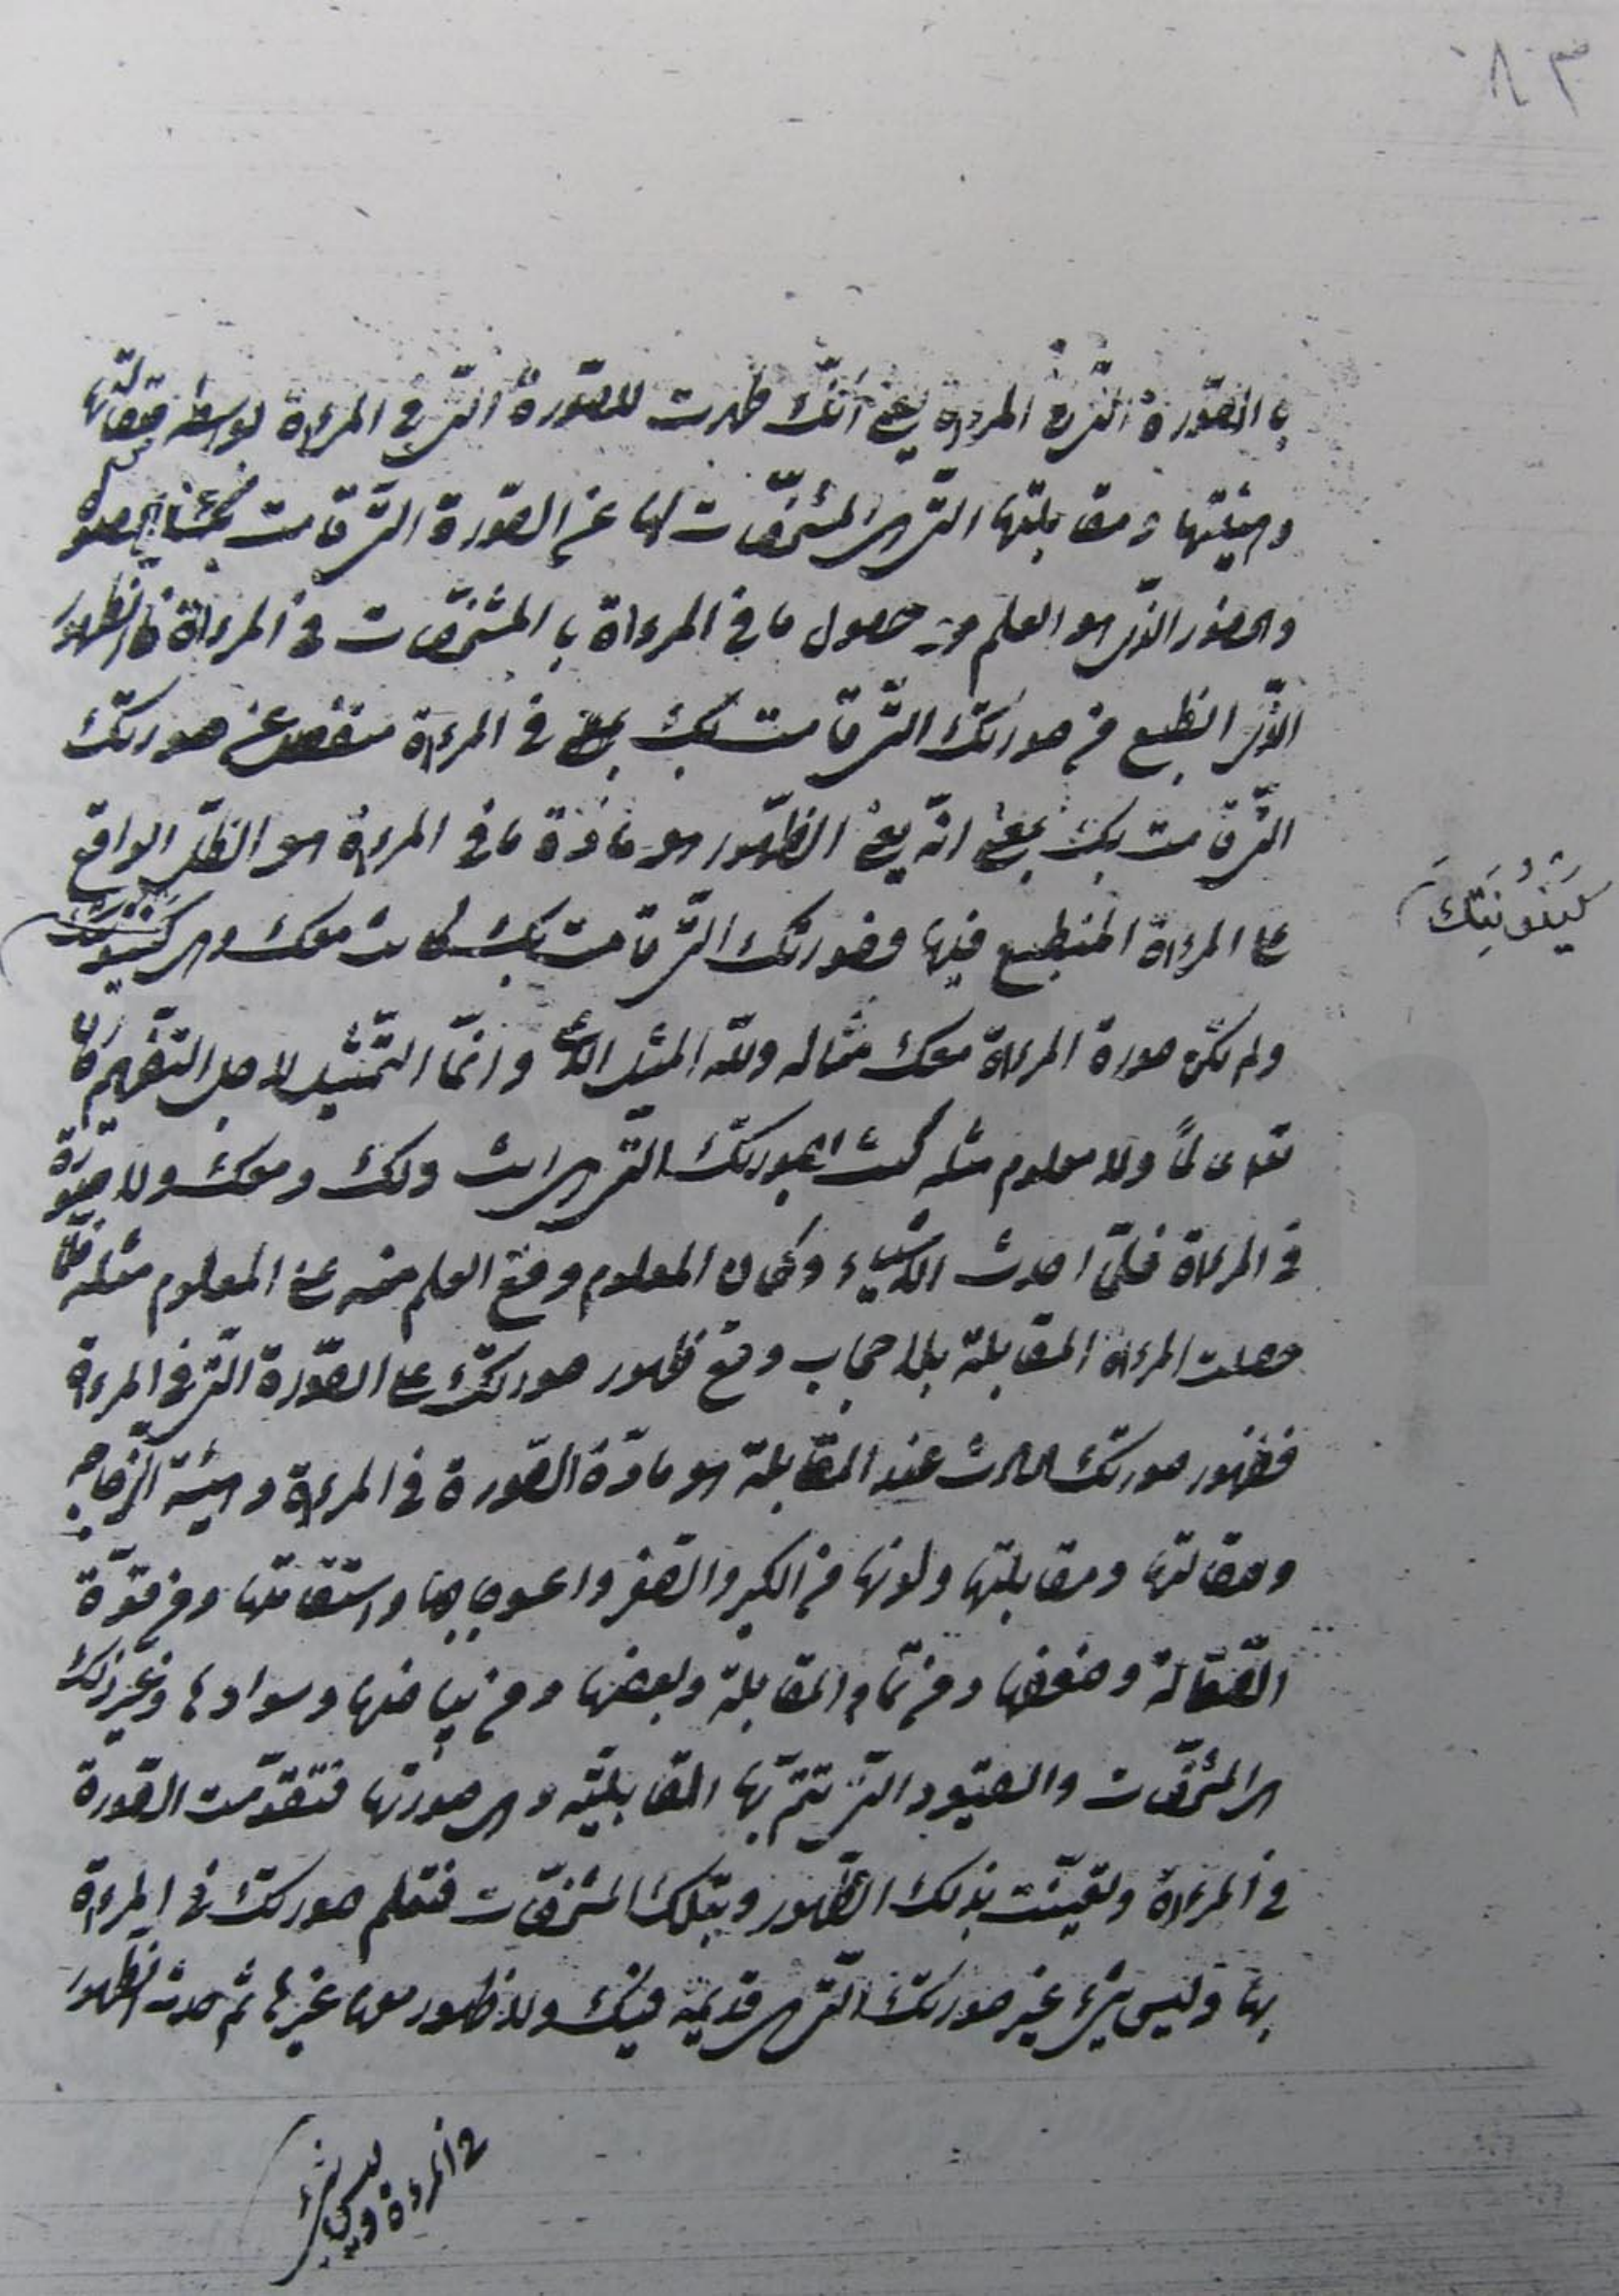 ٨٣
بالصّورة الّتى فى المرءاة يعنى انّك ظهرت للصّورة الّتى فى المرءاة بواسطة صقالتها
وهيئتها ومقابلتها الّتى هى المشخّصات لها عن الصّورة الّتى قامت
والحضور الذى هو العلم حصول ما فى المرءاة بالمشخّصات فى المرءاة فالظهور
الّذى انطبع من صورتك الّتى قامت بك بمعنى فى المرءاة منفصل عن صورتك
الّتى قامت بك بمعنى انّه يعنى الظّهور هو مادّة ما فى المرءاة هو الظّل الواقع
على المرءاة المنطبع فيها وصورتك الّتى قامت بك كانت معك وهى كينونتك
كَيْنُونِيَّتِكَ
ولم تكن صورة المرءاة معك مثاله ولله المثل الاعلى وانّما التّمثيل لاجل التّفهيم كان
تعالى عالماً ولا معلوم مثله كنت بصورتك الّتى هى انت ولك ومعك ولا صورة
فى المرءاة فلمّا احدث الاشياء وكان المعلوم وقع العلم منه على المعلوم مثله فلمّا
حصلت المرءاة المقابلة بلا حجاب وقع ظهور صورتك على الصّورة الّتى فى المرءاة
فظهور صورتك الحادث عند المقابلة هو مادّة الصّورة فى المرءاة وهيئة الزّجاجة
وصقالتها ومقابلتها ولونها من الكبر والصّغر واعوجاجها واستقامتها ومن قوّة
الصّقالة وضعفها ومن تمام المقابلة وبعضها ومن بياضها وسوادها وغير ذلك
هى المشخّصات والقيود الّتى تتمّ بها المقابليّة وهى صورتها فتقوّمت الصّورة
فى المرءاة وتعيّنت بذلك الظّهور وبتلك المشخّصات فتعلم صورتك فى المرءاة
بها وليس شىء غير صورتك الّتى هى قديمة فيك ولا ظهور معها غيرها ثم حدث الظهور
فى المرءاة وليس شىء